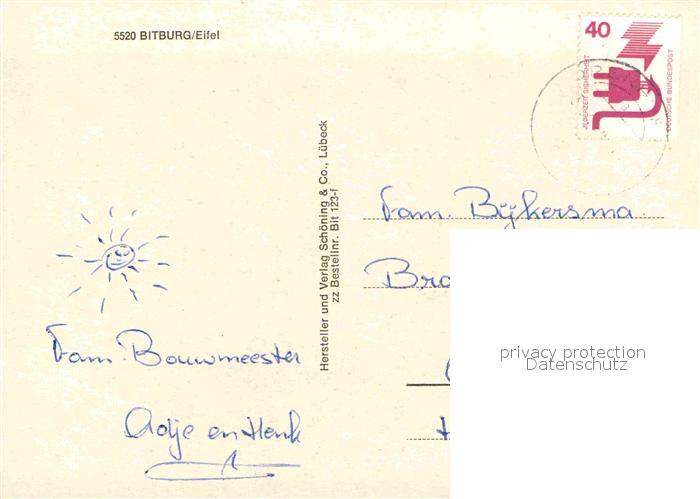 5520 BITBURG/Eifel
40
JEDERZEIT SICHERHEIT
DEUTSCHE BUNDESPOST
Hersteller und Verlag Schöning & Co., Lübeck
zz Bestellnr. Bit 123-f
Fam. Bijkersma
Fam. Bouwmeester
Adje en Henk
privacy protection
Datenschutz